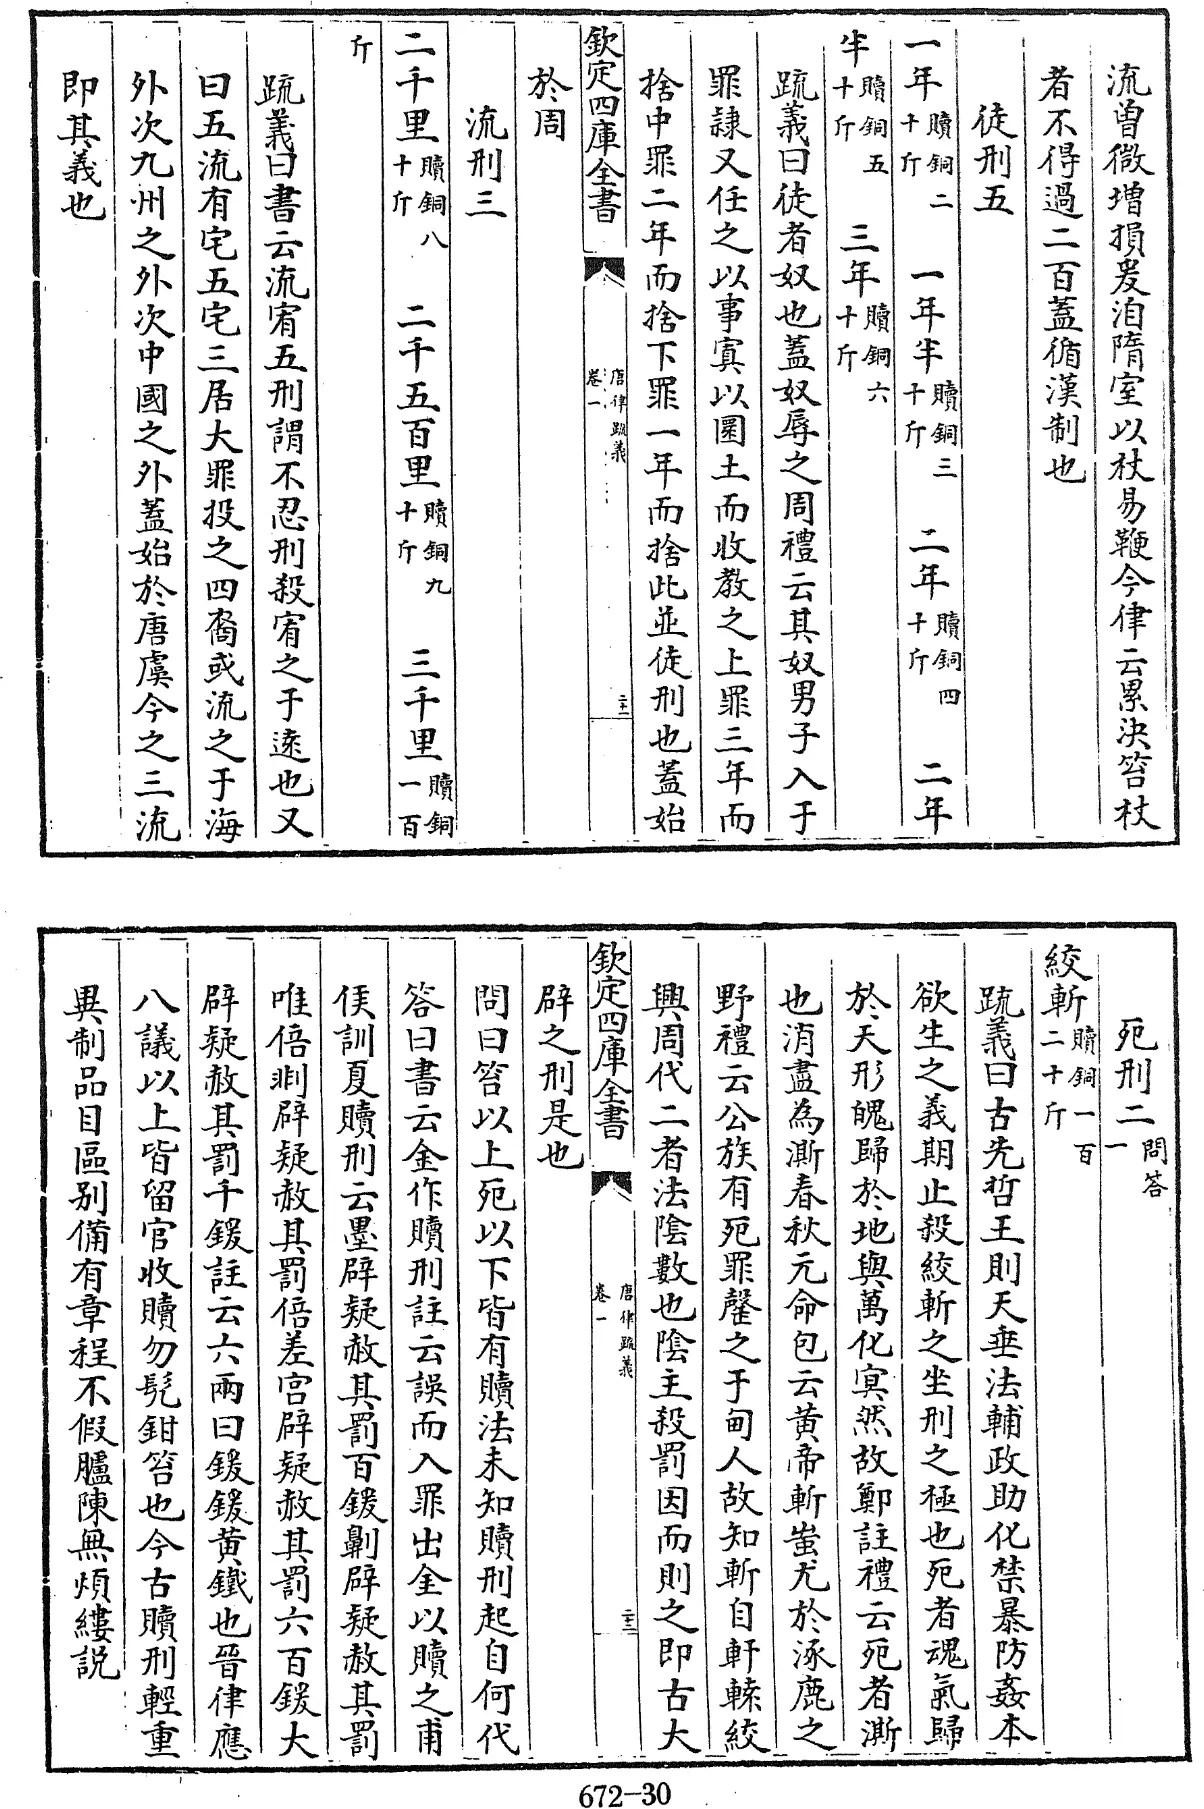 流曽微増損爰洎隋室以杖易鞭今律云累決笞杖
者不得過二百蓋循漢制也
徒刑五
一年贖銅二十斤 一年半贖銅三十斤 二年贖銅四十斤 二年
半贖銅五十斤 三年贖銅六十斤
疏義曰徒者奴也蓋奴辱之周禮云其奴男子入于
罪隸又任之以事寘以圜土而收教之上罪三年而
捨中罪二年而捨下罪一年而捨此並徒刑也蓋始
欽定四庫全書 唐律疏義 卷一 二十二
於周
流刑三
二千里贖銅八十斤 二千五百里贖銅九十斤 三千里贖銅一百
斤
疏義曰書云流宥五刑謂不忍刑殺宥之于遠也又
曰五流有宅五宅三居大罪投之四裔或流之于海
外次九州之外次中國之外蓋始於唐虞今之三流
即其義也
死刑二問答一
絞斬贖銅一百二十斤
疏義曰古先哲王則天垂法輔政助化禁暴防姦本
欲生之義期止殺絞斬之坐刑之極也死者魂氣歸
於天形魄歸於地與萬化冥然故鄭註禮云死者澌
也消盡為澌春秋元命包云黄帝斬蚩尤於涿鹿之
野禮云公族有死罪罄之于甸人故知斬自軒轅絞
興周代二者法陰數也陰主殺罰因而則之即古大
欽定四庫全書 唐律疏義 卷一 二十三
辟之刑是也
問曰笞以上死以下皆有贖法未知贖刑起自何代
答曰書云金作贖刑註云誤而入罪出金以贖之甫
侯訓夏贖刑云墨辟疑赦其罰百鍰劓辟疑赦其罰
唯倍剕辟疑赦其罰倍差宫辟疑赦其罰六百鍰大
辟疑赦其罰千鍰註云六兩曰鍰鍰黄鐵也晉律應
八議以上皆留官收贖勿髠鉗笞也今古贖刑輕重
異制品目區别備有章程不假臚陳無煩縷説
672-30